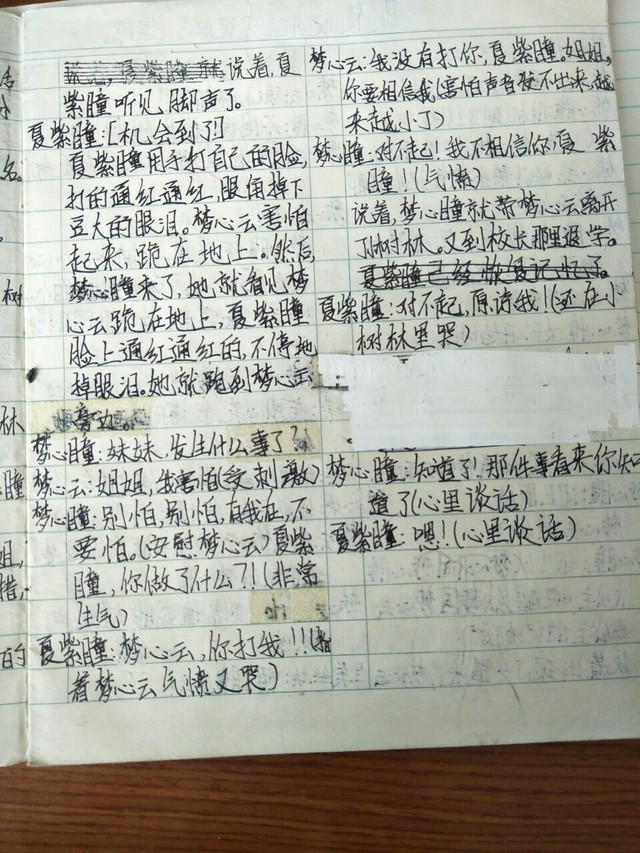 说着,夏
紫瞳听见脚声了。
夏紫瞳:[机会到了]
夏紫瞳用手打自己的脸,
打的通红通红,眼角掉下
豆大的眼泪。梦心云害怕
起来,跪在地上。然后,
梦心瞳来了,她就看见梦
心云跪在地上,夏紫瞳
脸上通红通红的,不停地
掉眼泪。她就跑到梦心云
旁边。
梦心瞳:妹妹,发生什么事了?
梦心云:姐姐,我害怕(受刺激)
梦心瞳:别怕,别怕,有我在,不
要怕。(安慰梦心云)夏紫
瞳,你做了什么?!(非常
生气)
夏紫瞳:梦心云,你打我!!(指
着梦心云气愤又哭)
梦心云:我没有打你,夏紫瞳。姐姐,
你要相信我(害怕声音发不出来,越
来越小了)
梦心瞳:对不起!我不相信你,夏紫
瞳!(气愤)
说着,梦心瞳就带梦心云离开
了树林。又到校长那里退学。
夏紫瞳已经恢复记忆了。
夏紫瞳:对不起,原谅我!(还在小
树林里哭)
梦心瞳:知道了!那件事看来你知
道了(心里谈话)
夏紫瞳:嗯!(心里谈话)
名。
树
林
瞳
姐,
措,
的